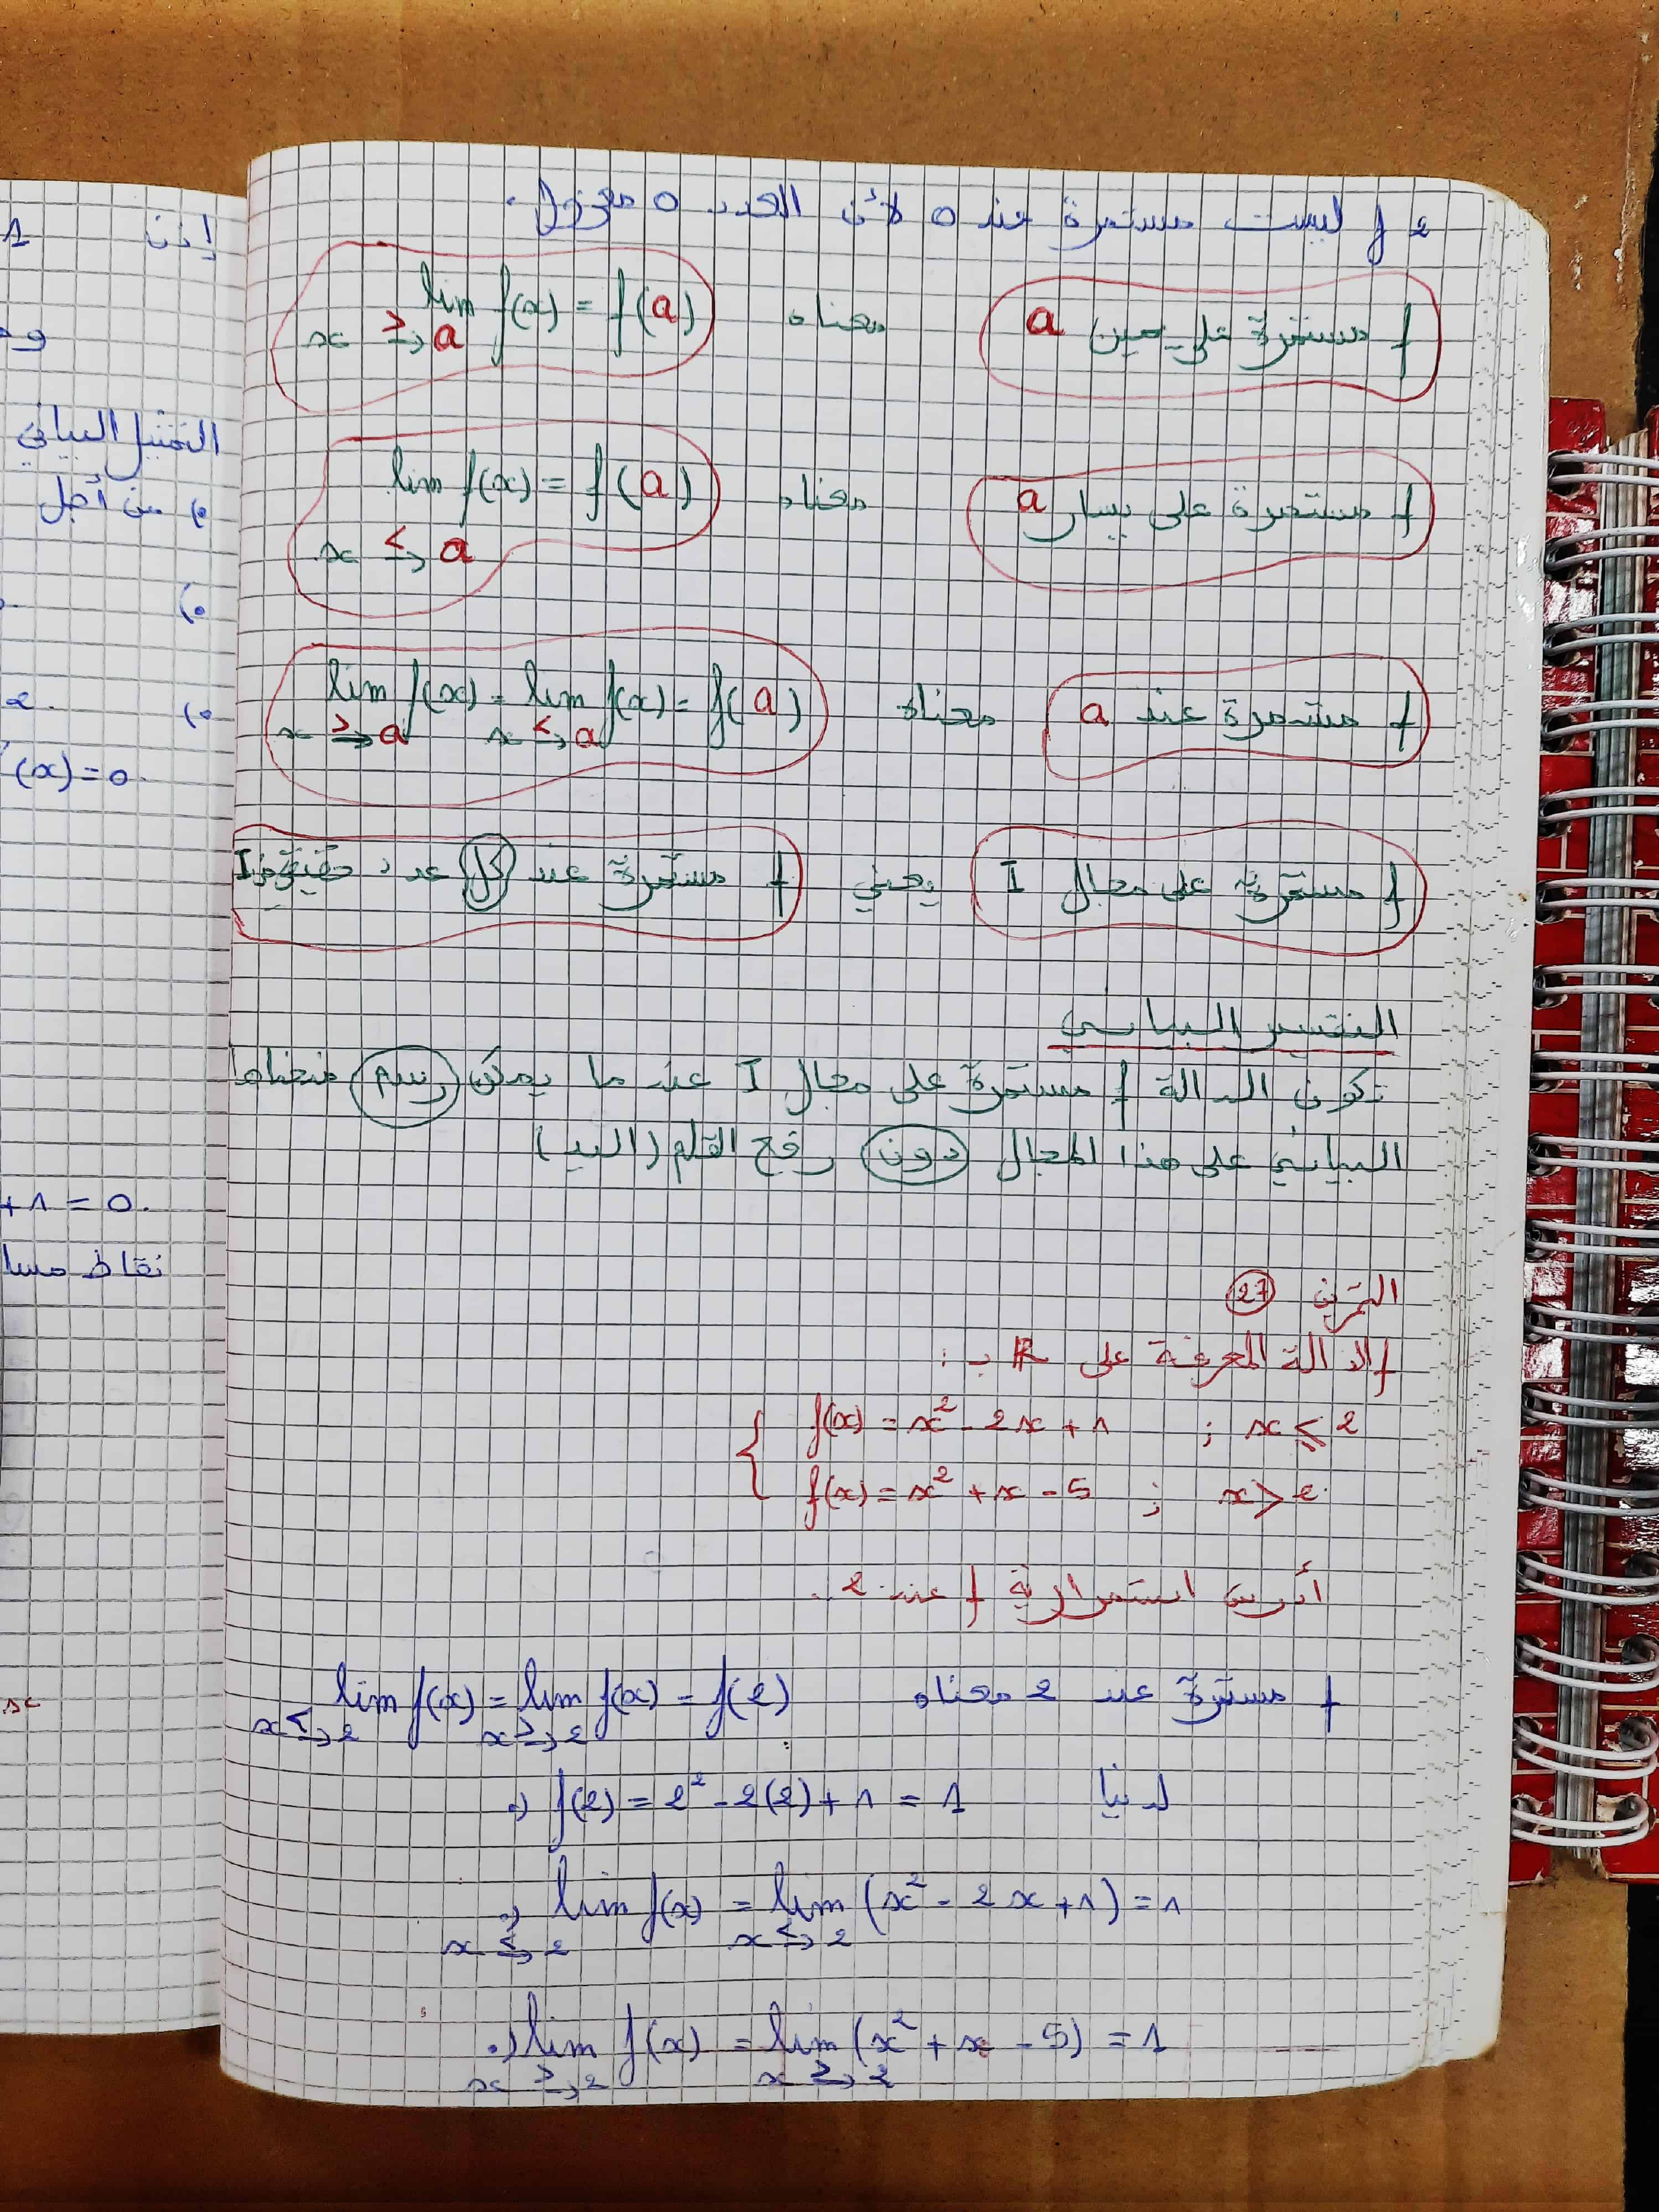 f ليست مستمرة عند 0 لأن العدد 0 معزول.
f مستمرة على يمين a معناه lim f(x) = f(a)
x ≥→ a
f مستمرة على يسار a معناه lim f(x) = f(a)
x ≤→ a
f مستمرة عند a معناه lim f(x) = lim f(x) = f(a)
x ≥→ a x ≤→ a
f مستمرة على مجال I يعني f مستمرة عند كل عدد حقيقي من I
التفسير البياني
تكون الدالة f مستمرة على مجال I عندما يمكن رسم منحناها
البياني على هذا المجال دون رفع القلم (اليد)
التمرين 27
f الدالة المعرفة على R بـ :
f(x) = x² - 2x + 1 ; x ≤ 2
f(x) = x² + x - 5 ; x > 2
أدرس استمرارية f عند 2.
f مستمرة عند 2 معناه lim f(x) = lim f(x) = f(2)
x ≤→ 2 x ≥→ 2
لدينا •) f(2) = 2² - 2(2) + 1 = 1
•) lim f(x) = lim (x² - 2x + 1) = 1
x ≤→ 2 x ≤→ 2
•) lim f(x) = lim (x² + x - 5) = 1
x ≥→ 2 x ≥→ 2
إذن 1
التمثيل البياني
•) من أجل
•)
•) 2.
(x) = 0.
+ 1 = 0.
نقاط
x